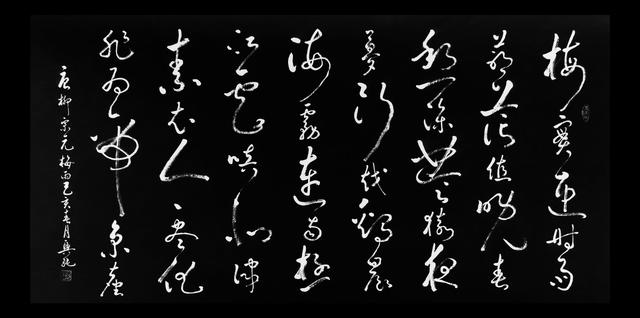 梅實迎時雨
蒼茫值晚春
愁深楚猿夜
夢斷越鷄晨
海霧連南極
江雲暗北津
素衣今盡化
非為帝京塵
唐柳宗元梅雨己亥春月